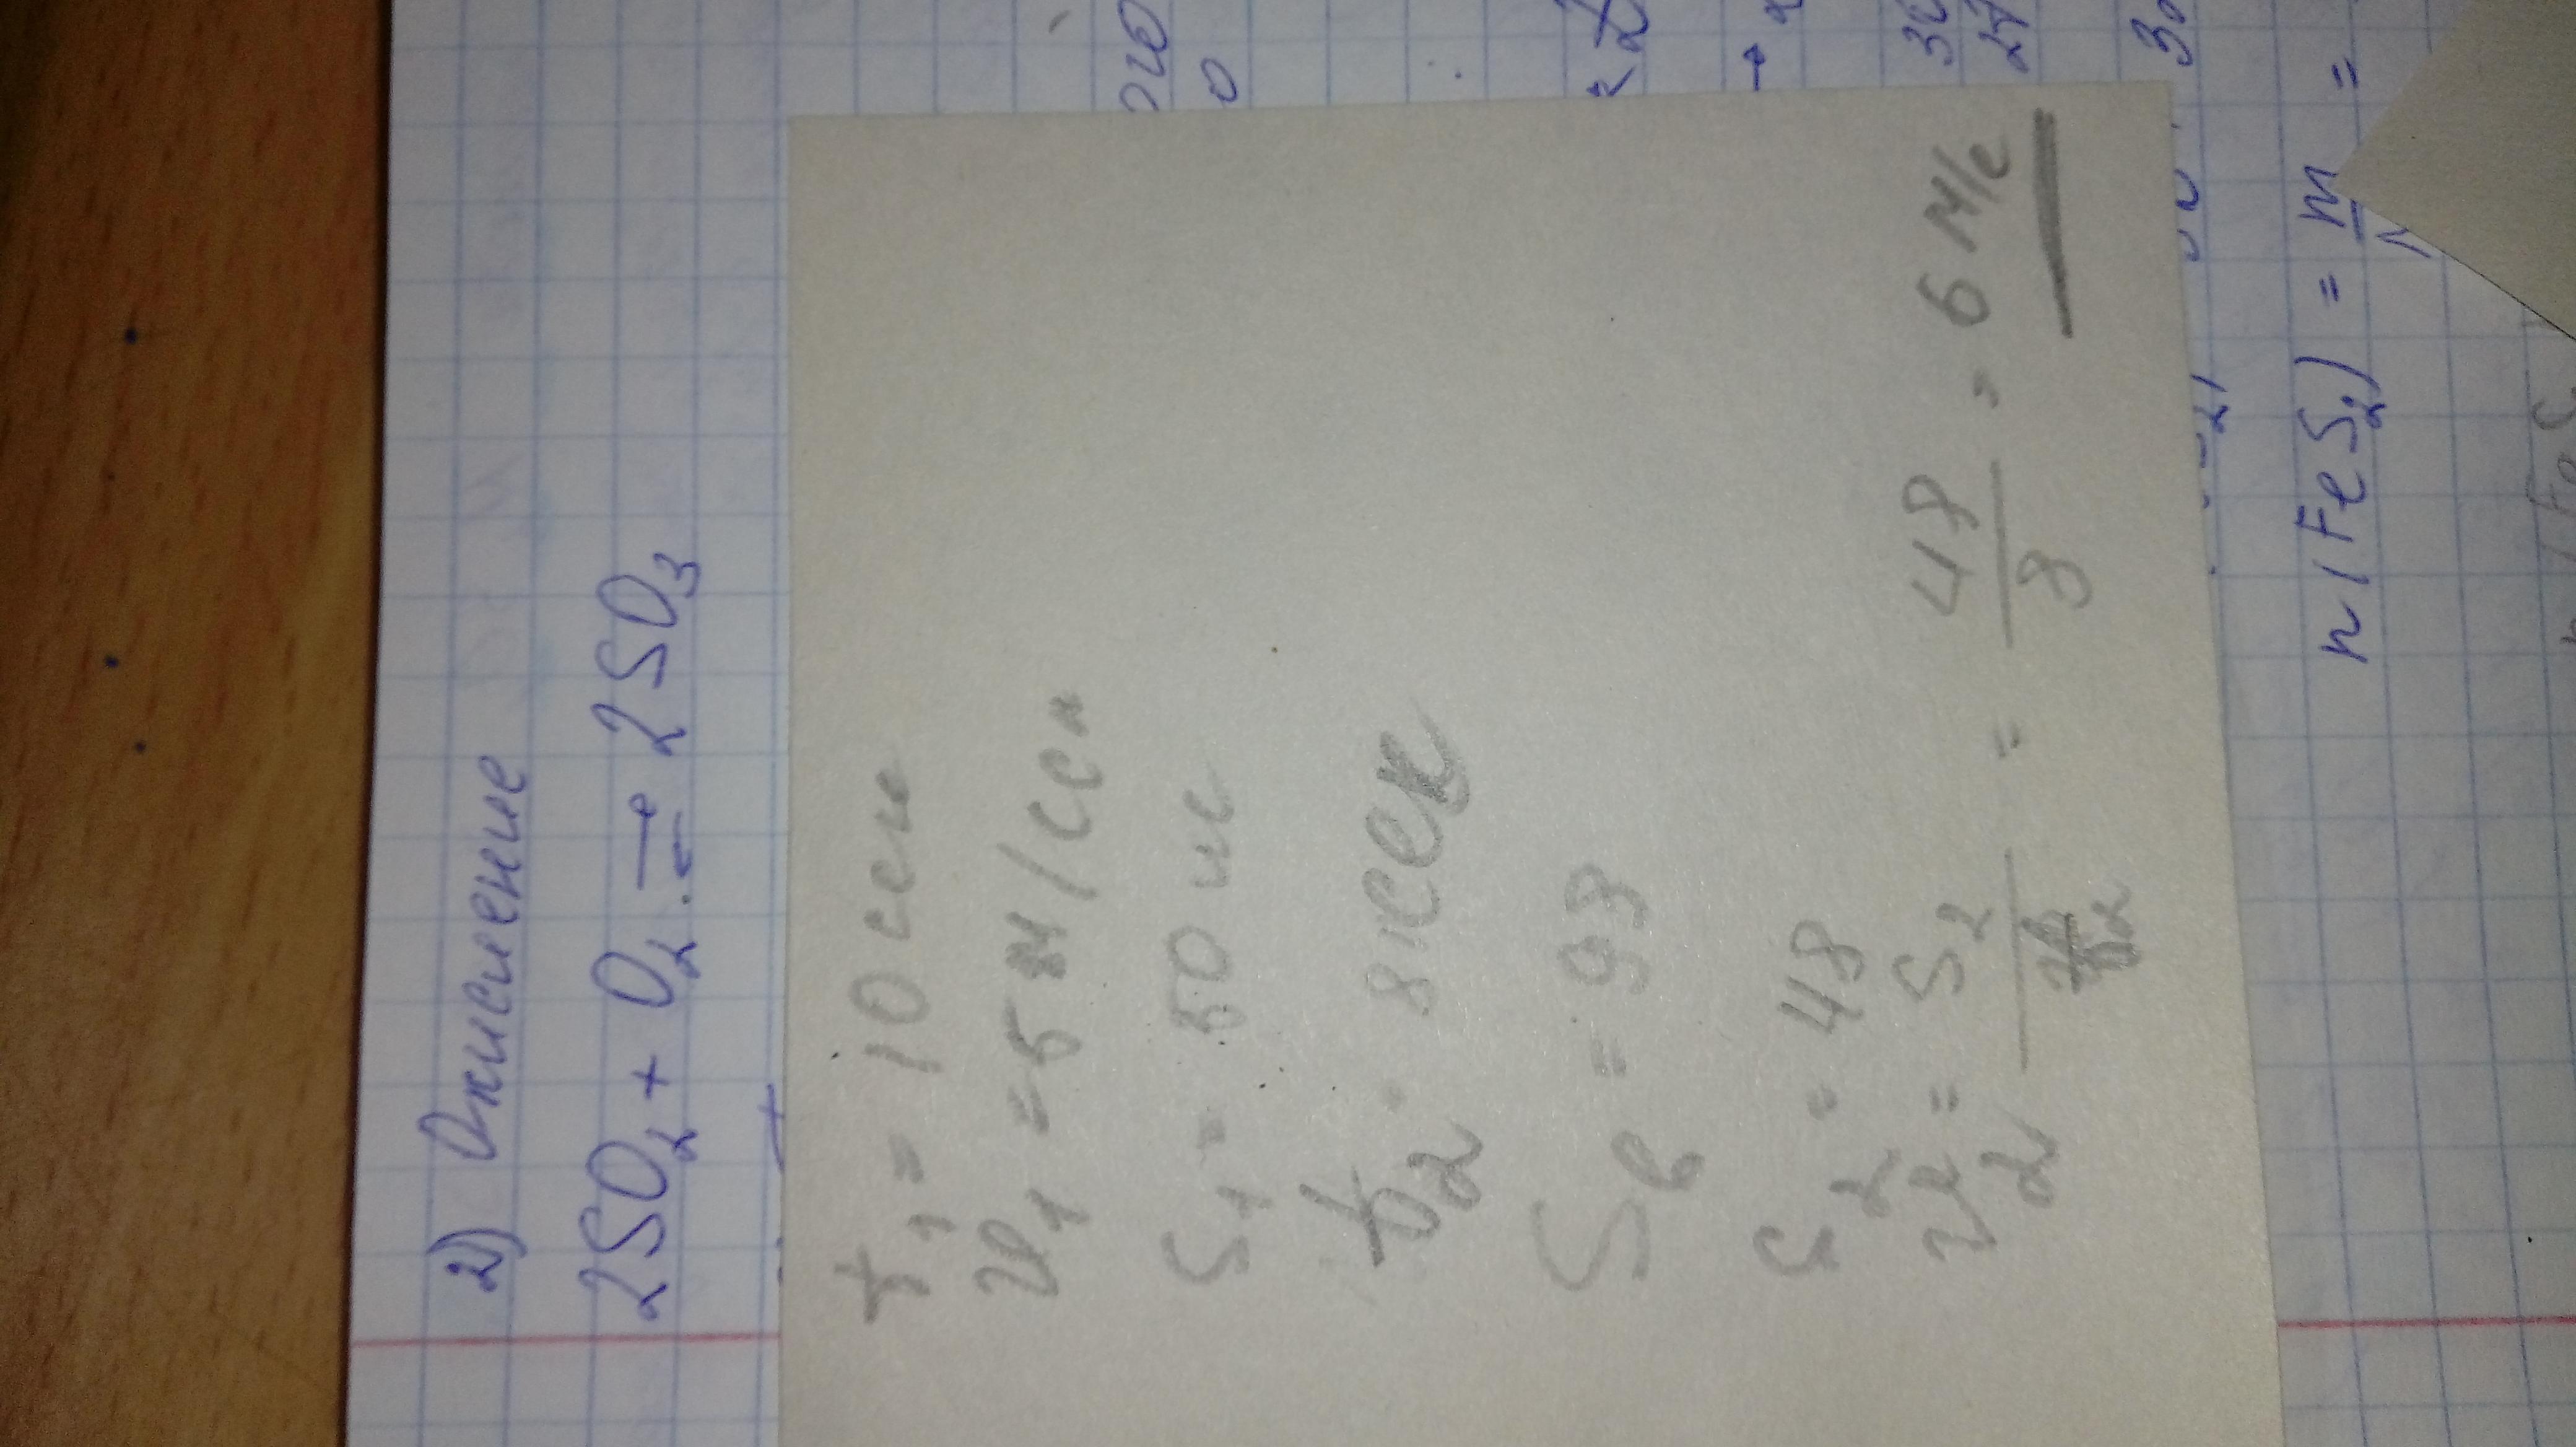 2) Окисление
2SO₂ + O₂ ⇄ 2SO₃
t₁ = 10 сек
v₁ = 5 м/сек
S₁ = 50 м
t₂ = 8 сек
Sв = 98
S₂ = 48
v₂ = S₂/t₂ = 48/8 = 6 м/с
n(FeS₂) = m =